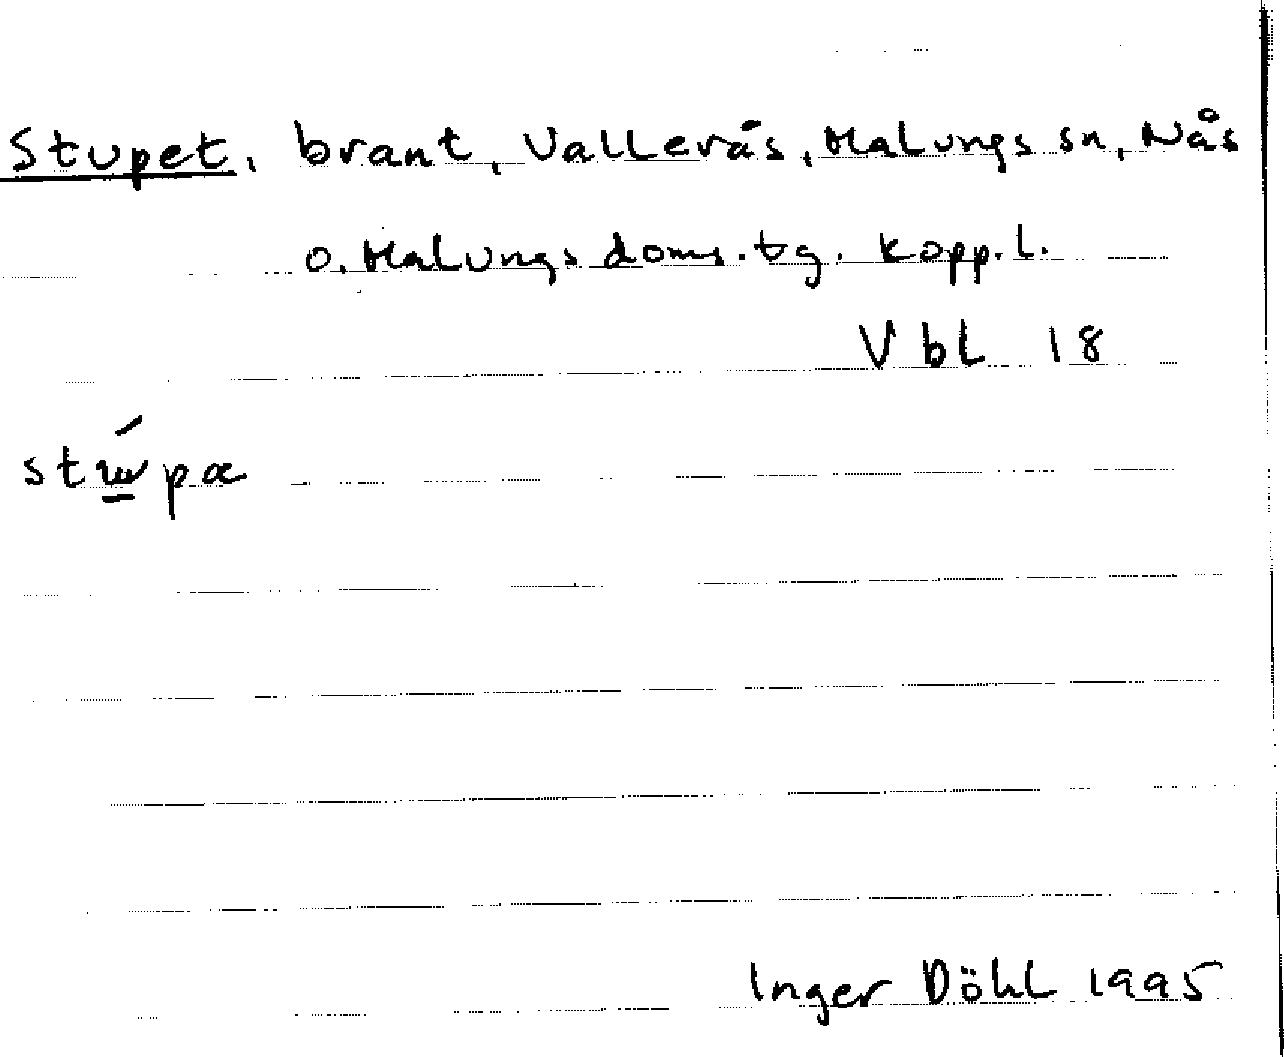 Stupet, brant, Vallerås, Malungs sn, Nås
o. Malungs doms. tg. Kopp. l.
Vbl 18
Inger Döhl 1995